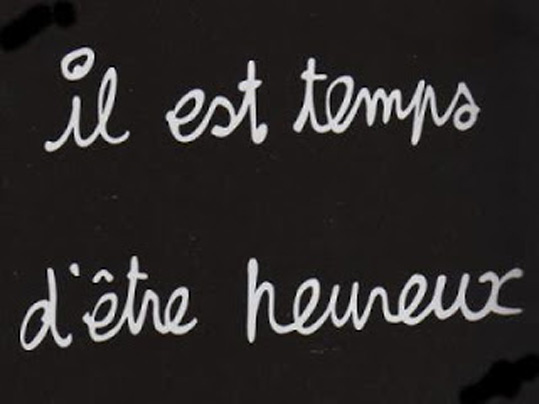 il est temps
d'être heureux